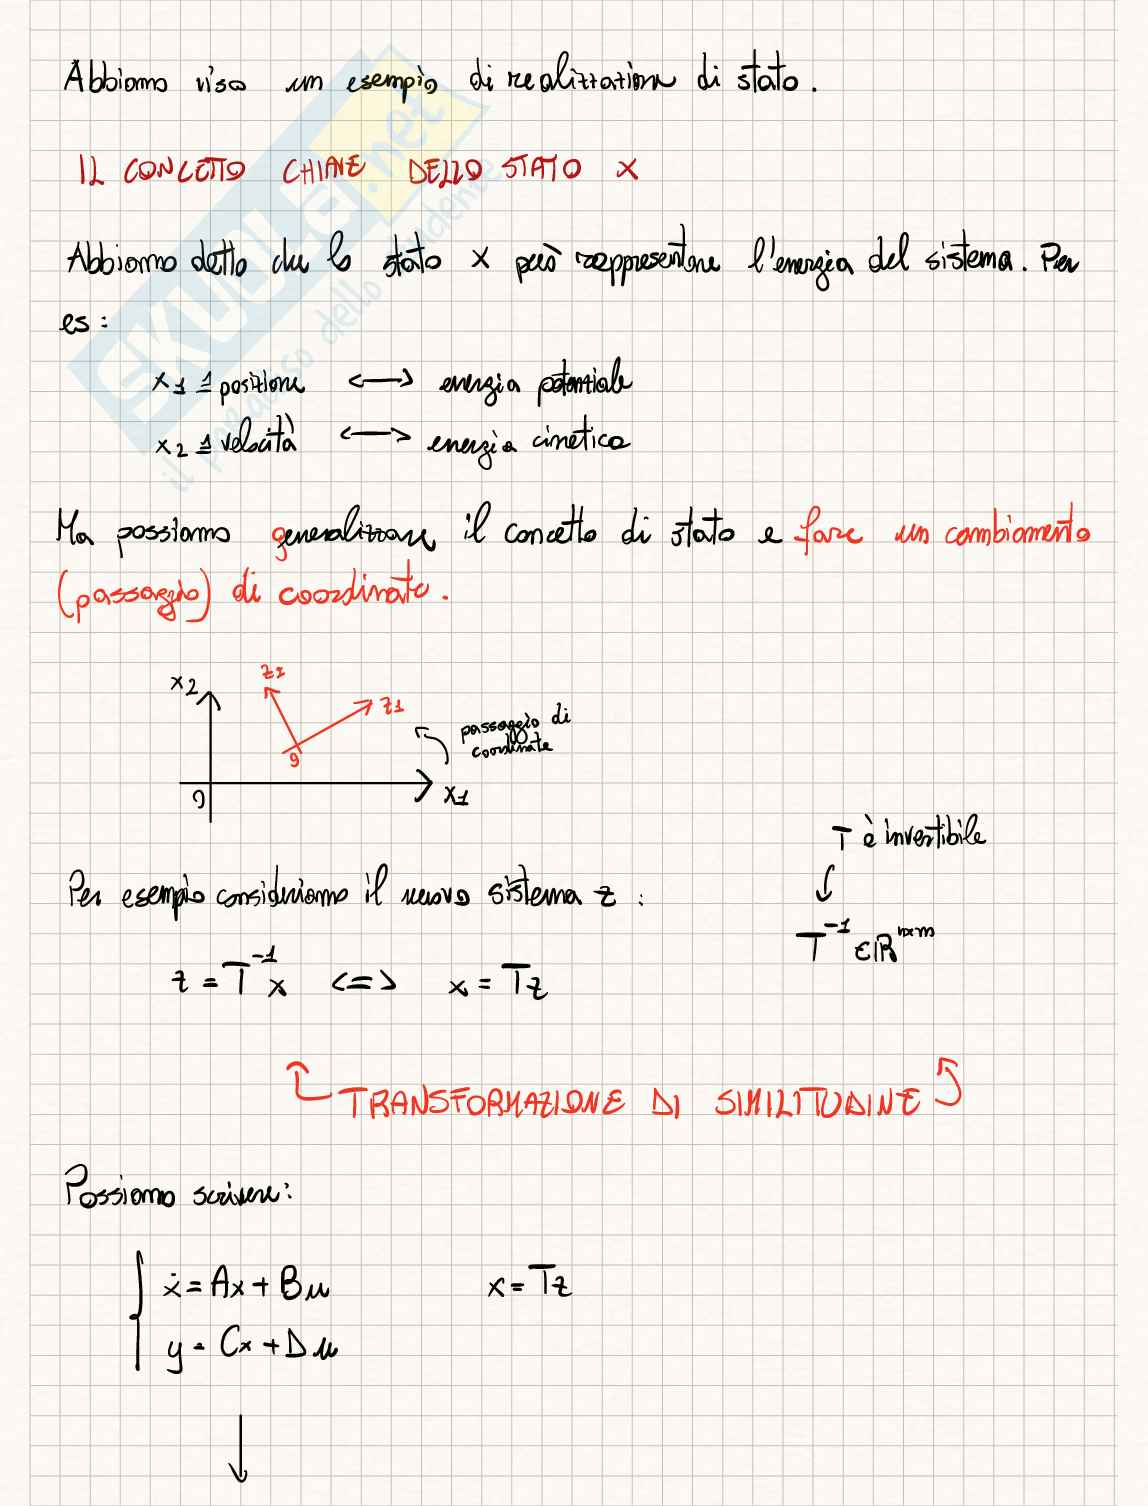 Abbiamo viso un esempio di realizzazione di stato.
IL CONCETTO CHIAVE DELLO STATO X
Abbiamo detto che lo stato x può rappresentare l'energia del sistema. Per
es:
x1 ≜ posizione <-> energia potenziale
x2 ≜ velocità <-> energia cinetica
Ma possiamo generalizzare il concetto di stato e fare un cambiamento
(passaggio) di coordinate.
x2
z2
z1
passaggio di
coordinate
0
x1
T è invertibile
Per esempio consideriamo il nuovo sistema z :
T^-1 ∈ ℝ^nxn
z = T^-1 x <=> x = Tz
TRANSFORMAZIONE DI SIMILITUDINE
Possiamo scrivere:
ẋ = Ax + Bu x = Tz
y = Cx + Du
SKUOLA.net
il paradiso dello studente